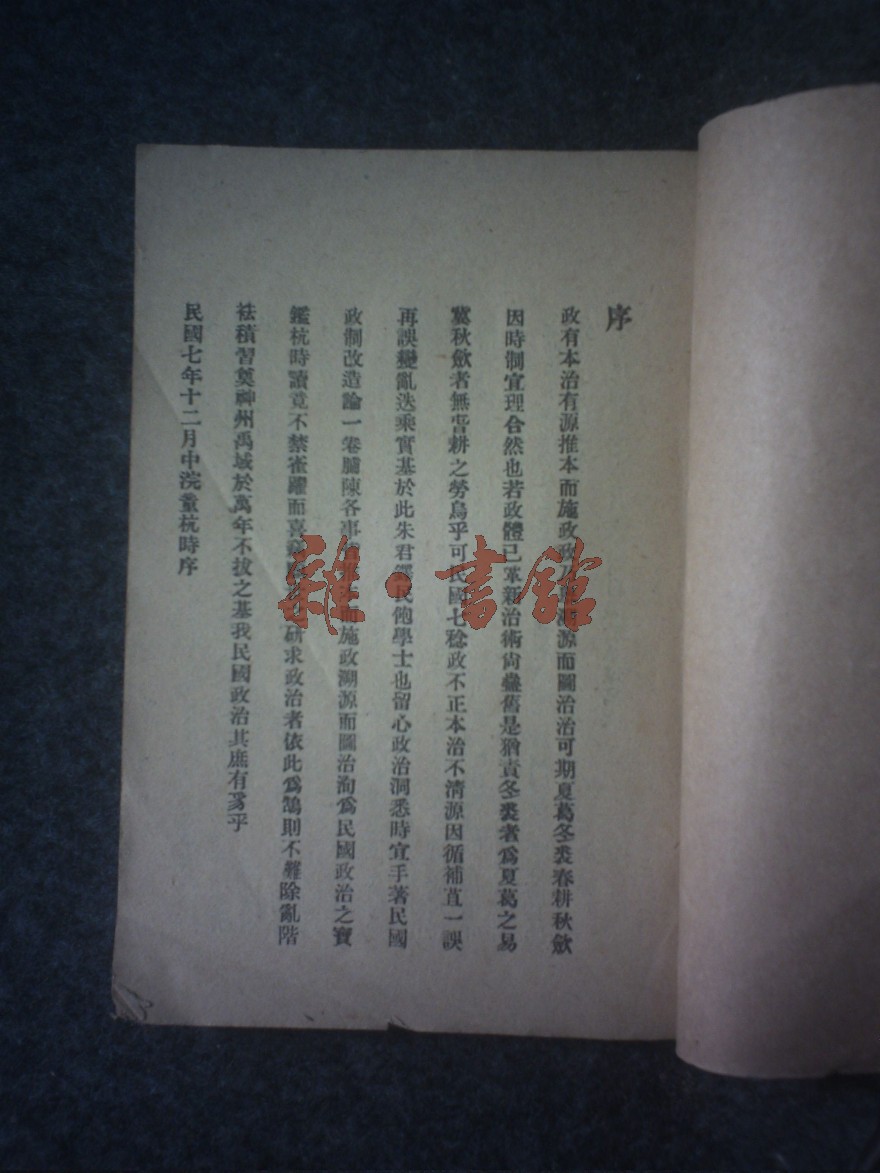 序
政有本治有源推本而施政政乃理溯源而圖治治可期夏葛冬裘春耕秋斂
因時制宜理合然也若政體已革新治術尙蠱舊是猶責冬裘者爲夏葛之易
冀秋斂者無耕之勞烏乎可民國七稔政不正本治不清源因循補苴一誤
再誤變亂迭乘實基於此朱君民飽學士也留心政治洞悉時宜手著民國
政制改造論一卷臚陳各事而施政溯源而圖治洵爲民國政治之寶
鑑杭時讀竟不禁雀躍而喜研求政治者依此爲鵠則不難除亂階
祛積習奠神州禹域於萬年不拔之基我民國政治其庶有豸乎
民國七年十二月中浣童杭時序
雜·書館